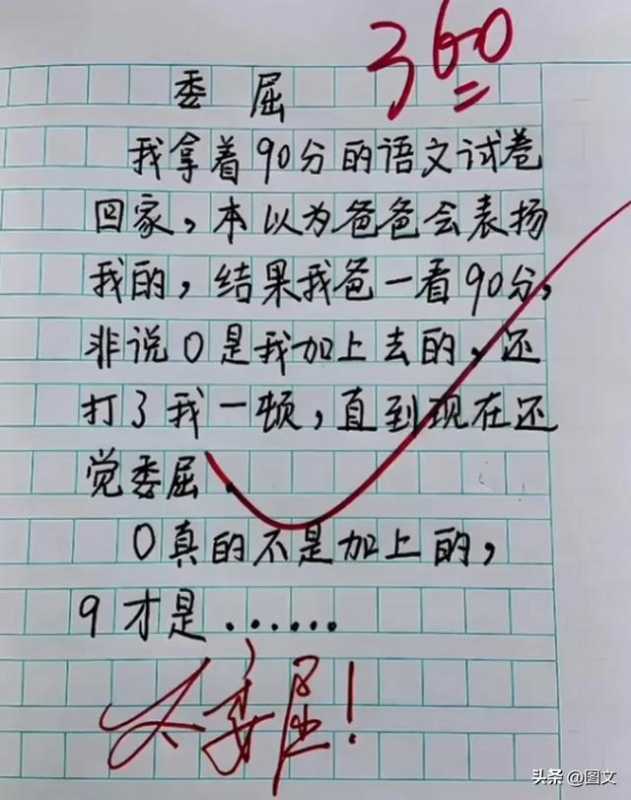 360
委屈
我拿着90分的语文试卷
回家，本以为爸爸会表扬
我的，结果我爸一看90分，
非说0是我加上去的，还
打了我一顿，直到现在还
觉委屈．
0真的不是加上的，
9才是……
太委屈！
头条 @图文